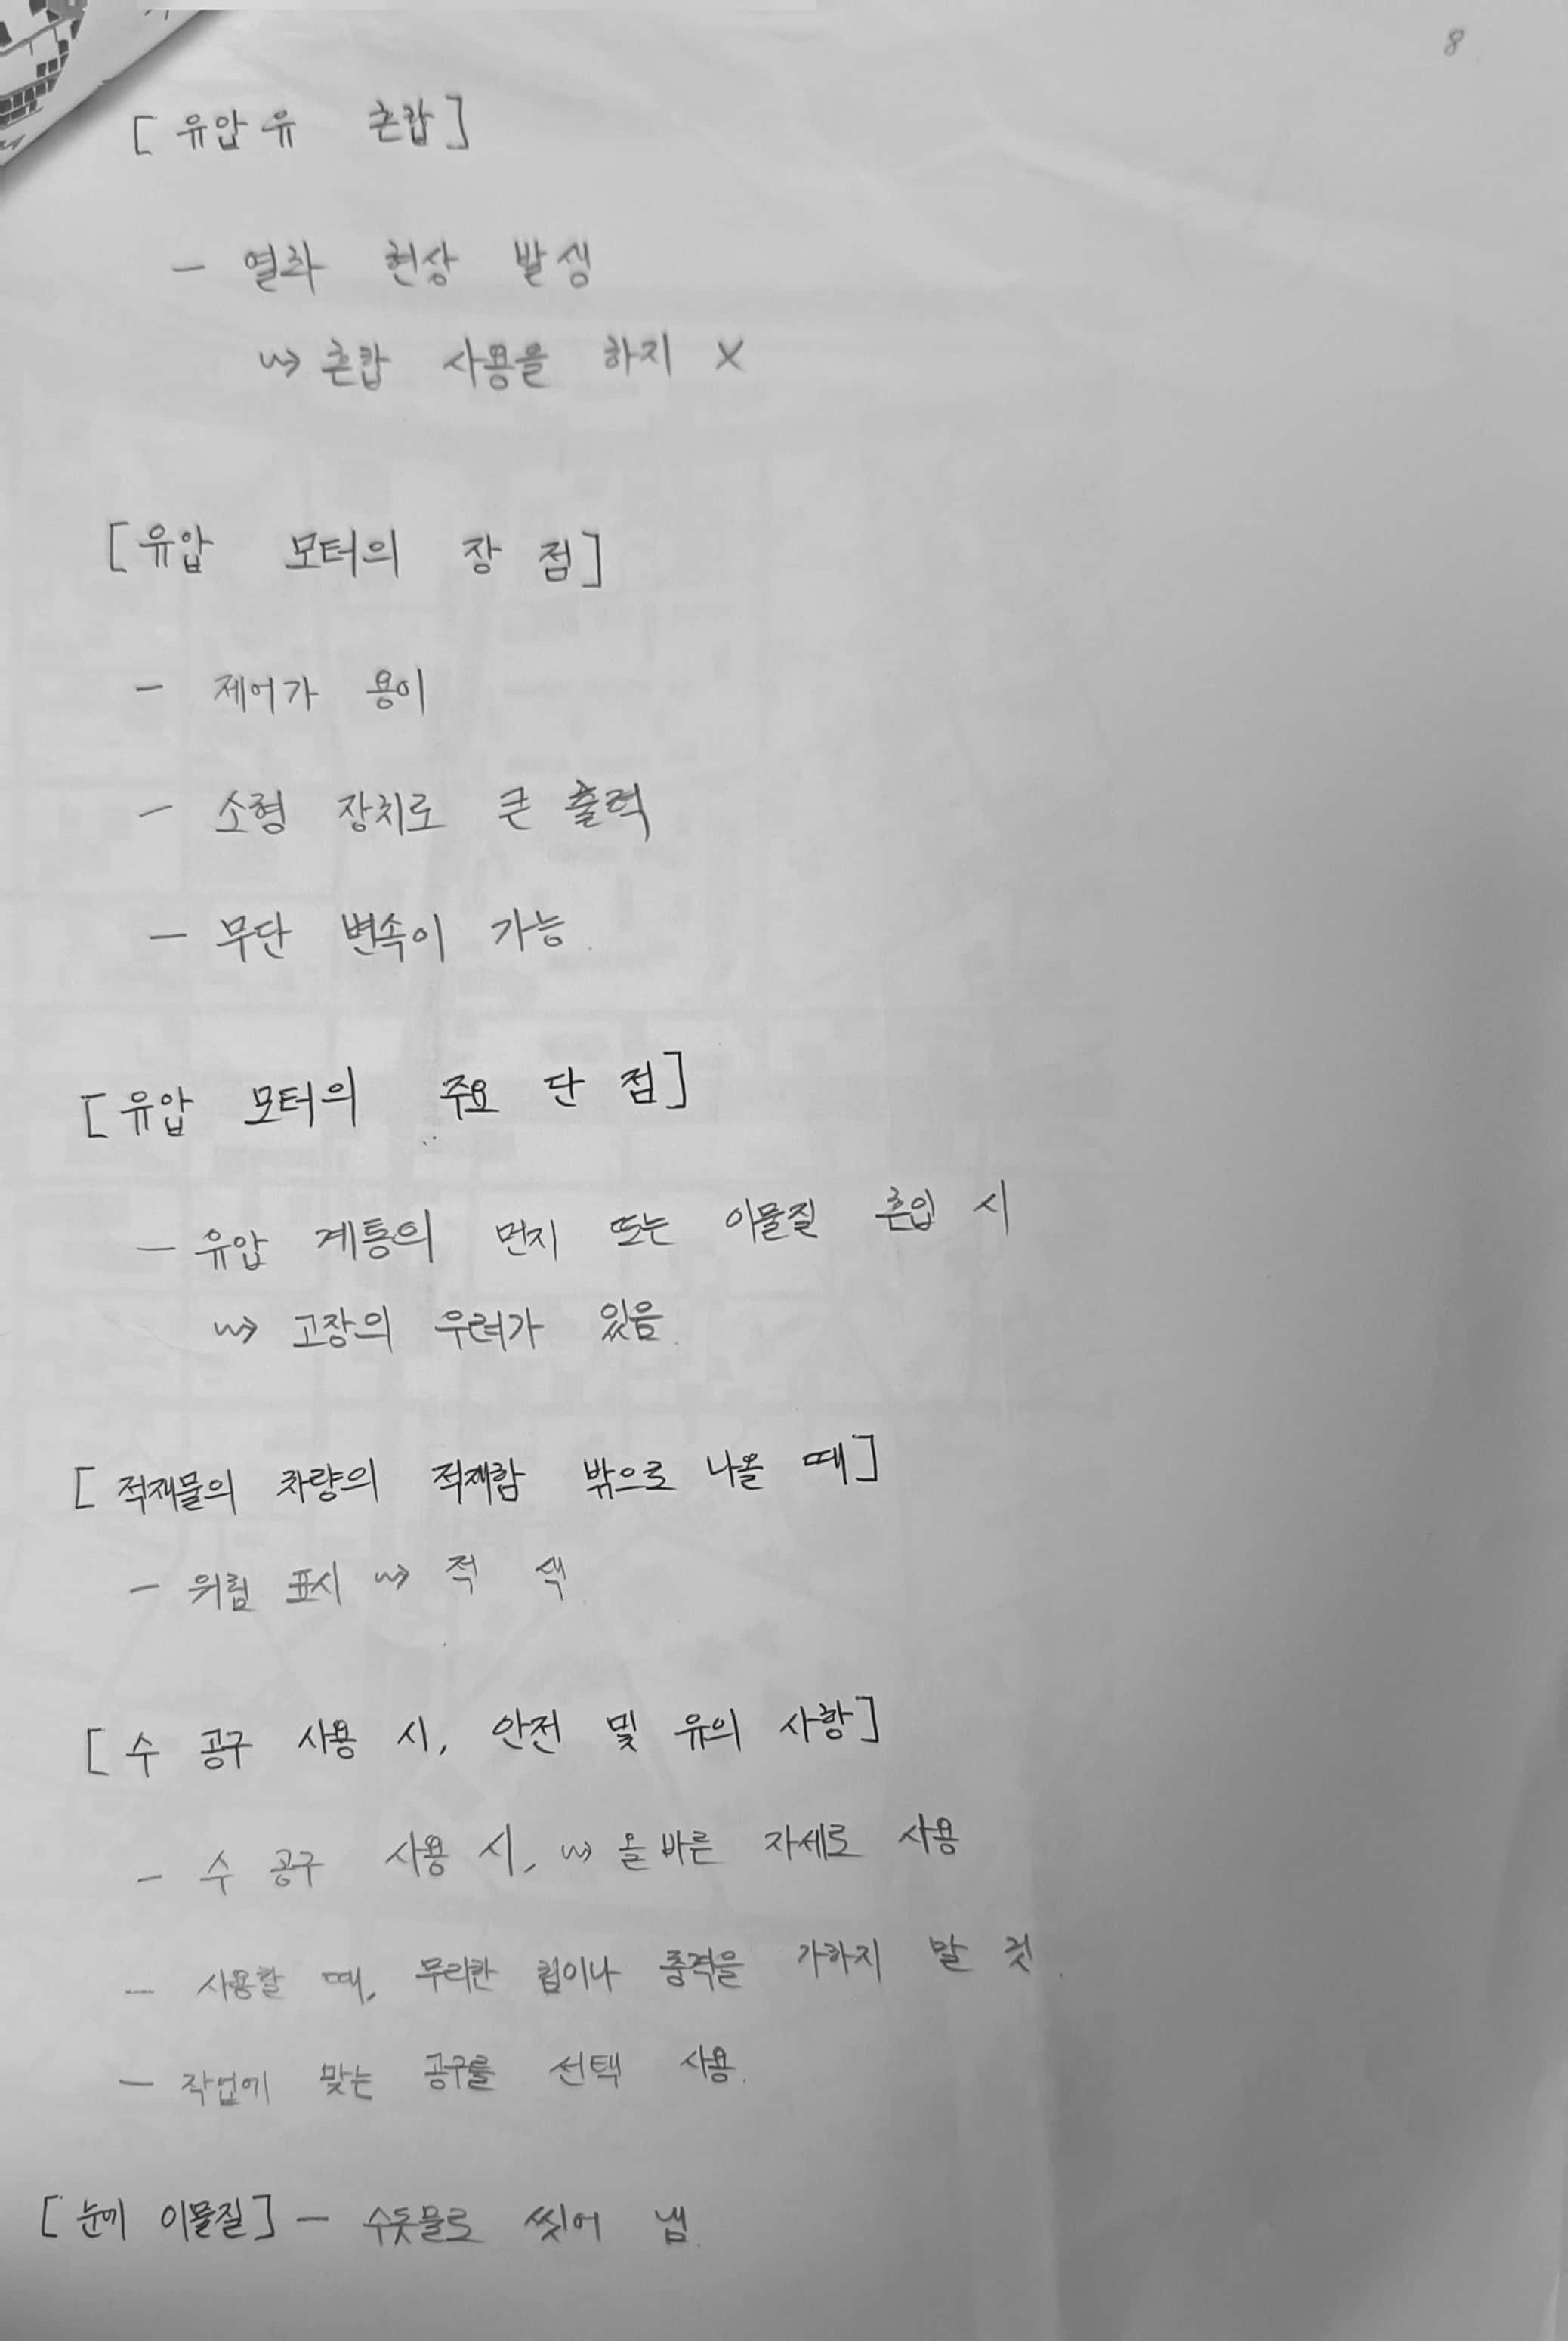 8
[ 유압유 혼합 ]
- 열화 현상 발생
↝ 혼합 사용을 하지 X
[ 유압 모터의 장점 ]
- 제어가 용이
- 소형 장치로 큰 출력
- 무단 변속이 가능.
[ 유압 모터의 주요 단점 ]
- 유압 계통의 먼지 또는 이물질 혼입 시
↝ 고장의 우려가 있음.
[ 적재물의 차량의 적재함 밖으로 나올 때 ]
- 위험 표시 ↝ 적색.
[ 수공구 사용 시, 안전 및 유의 사항 ]
- 수공구 사용 시, ↝ 올바른 자세로 사용
- 사용할 때, 무리한 힘이나 충격을 가하지 말 것.
- 작업에 맞는 공구를 선택 사용.
[ 눈에 이물질 ] - 수돗물로 씻어 냄.